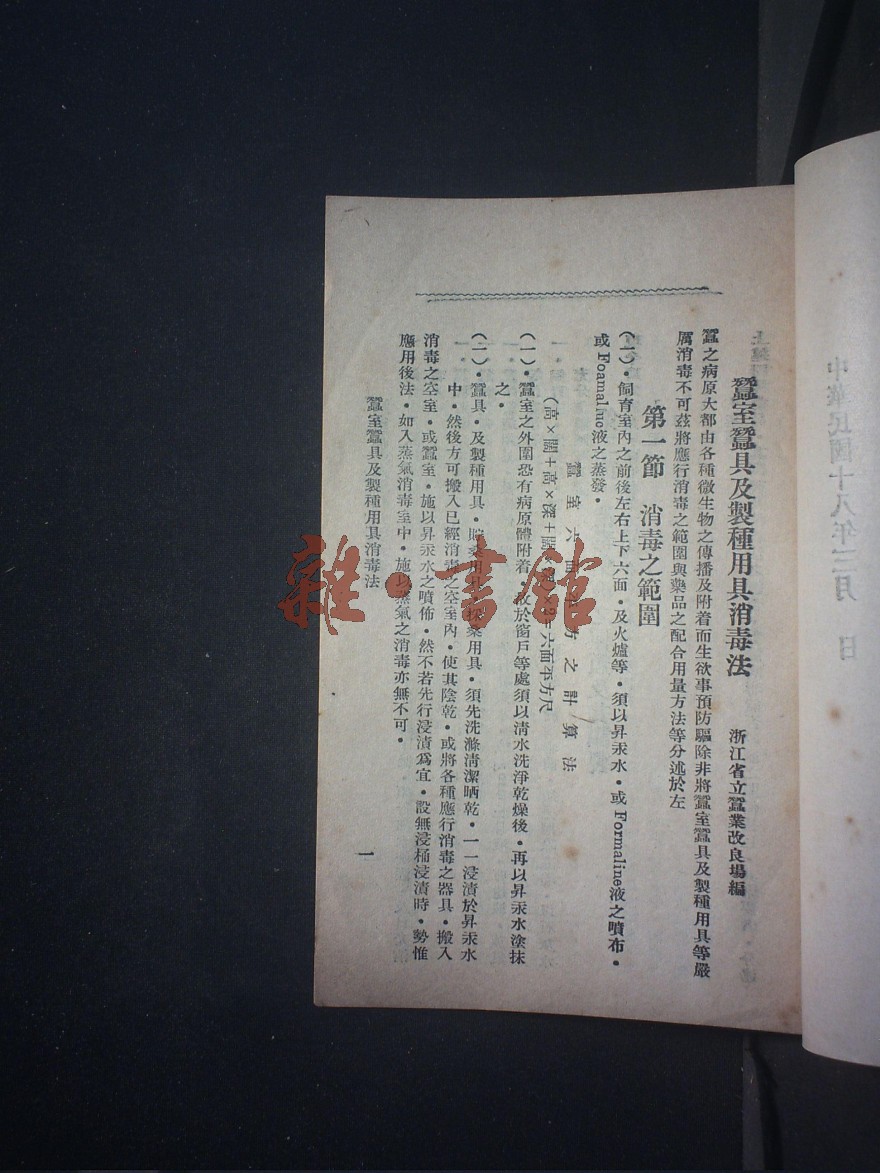 中華民國十八年三月　日
蠶室蠶具及製種用具消毒法
浙江省立蠶業改良場編
蠶之病原大都由各種微生物之傳播及附着而生欲事預防驅除非將蠶室蠶具及製種用具等嚴
厲消毒不可茲將應行消毒之範圍與藥品之配合用量方法等分述於左
第一節　消毒之範圍
(一)・飼育室內之前後左右上下六面・及火爐等・須以昇汞水・或Formaline液之噴布・
或Foamaline液之蒸發・
蠶室六面方之計算法
(高×闊＋高×深＋闊　六面平方尺
(一)・蠶室之外圍恐有病原體附着・故於窗戶等處須以清水洗淨乾燥後・再以昇汞水塗抹
之・
(一)・蠶具・及製種用具・貯桑用具・採桑用具・須先洗滌清潔晒乾・一一浸漬於昇汞水
中・然後方可搬入已經消毒之空室內・使其陰乾・或將各種應行消毒之器具・搬入
消毒之空室・或蠶室・施以昇汞水之噴佈・然不若先行浸漬爲宜・設無浸桶浸漬時・勢惟
應用後法・如入蒸氣消毒室中・施以蒸氣之消毒亦無不可・
蠶室蠶具及製種用具消毒法
一
雜・書館